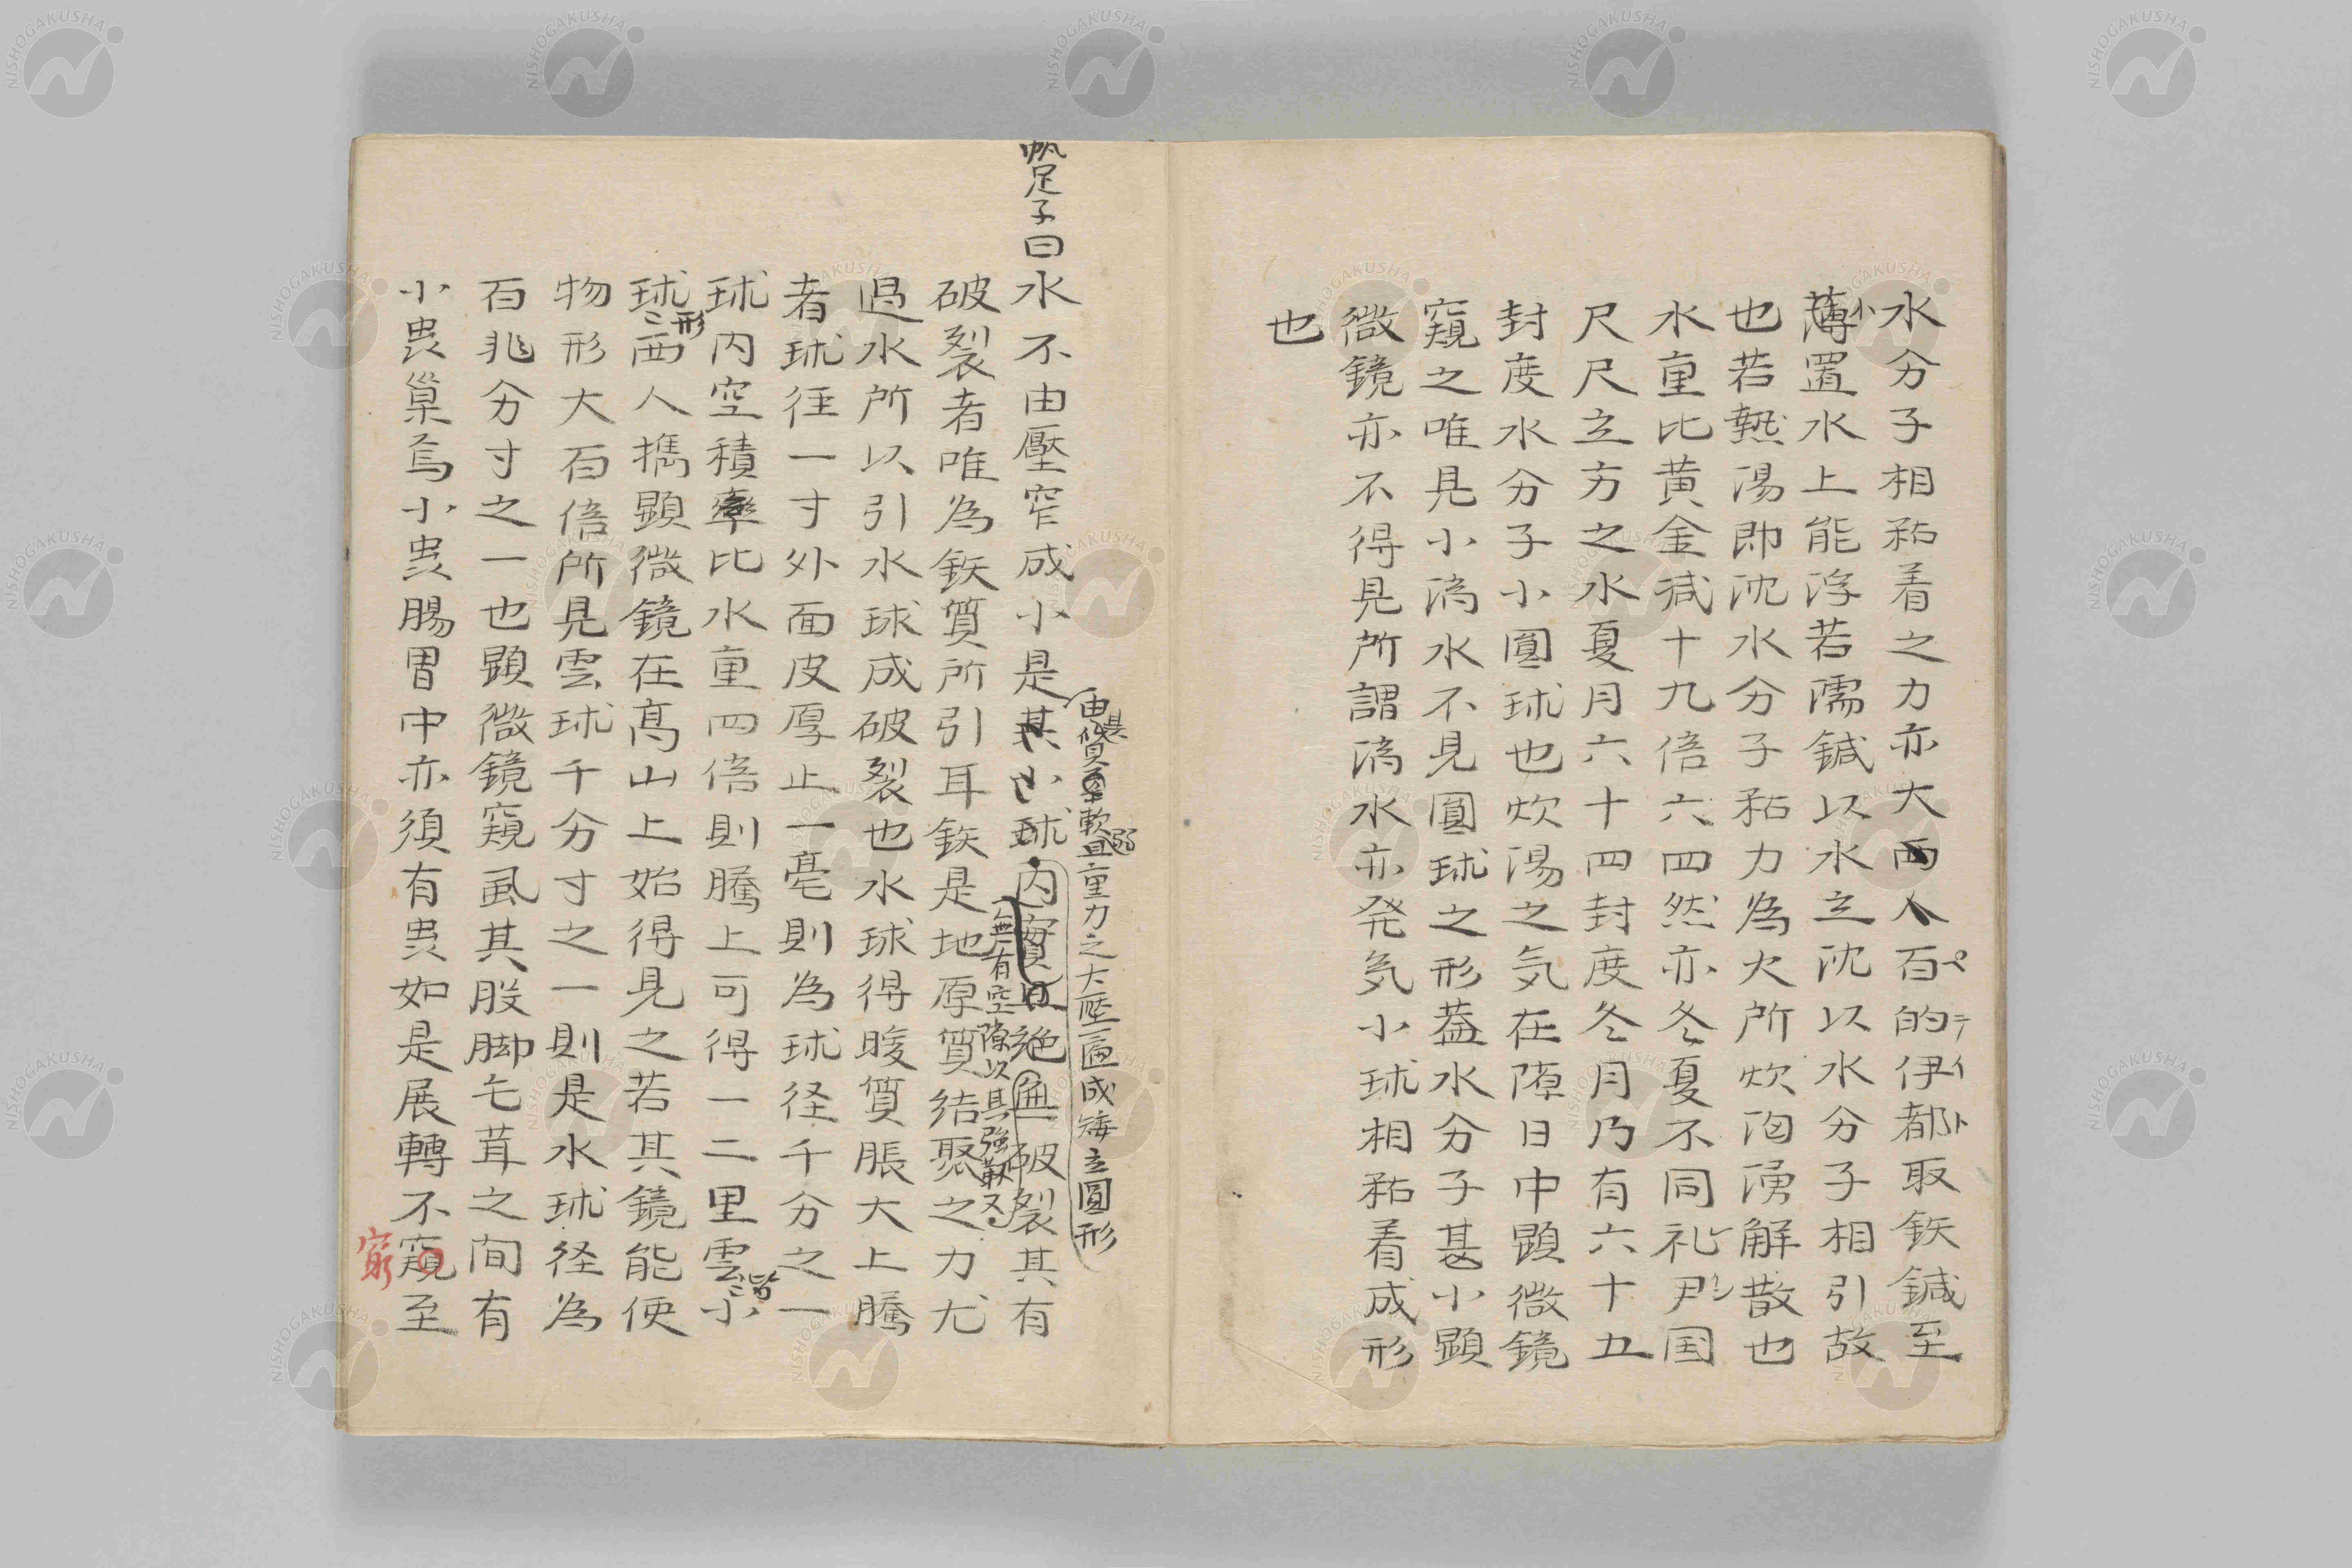 水分子相黏着之力亦大西人百的伊都取鉄鍼至
ペテイト
薄小置水上能浮若濡鍼以水立沈以水分子相引故
也若熱湯即沈水分子黏力為火所炊洶湧解散也
水重比黄金減十九倍六四然亦冬夏不同礼尹国
レイン
尺尺立方之水夏月六十四封度冬月乃有六十五
封度水分子小圓球也炊湯之気在隙日中顕微鏡
窺之唯見小滴水不見圓球之形蓋水分子甚小顕
微鏡亦不得見所謂滴水亦発気小球相黏着成形
也
由其質軟弱且重力之大壓匾成矮立圓形
帆足子曰水不由壓窄成小是其小球内實絶無破裂其有
無有空隙以其強靱又
破裂者唯為鉄質所引耳鉄是地原質結聚之力尤
過水所以引水球成破裂也水球得暖質脹大上騰
者球径一寸外面皮厚止一毫則為球径千分之一
球内空積率比水重四倍則騰上可得一二里雲皆小
球之形西人携顕微鏡在高山上始得見之若其鏡能使
物形大百倍所見雲球千分寸之一則是水球径為
百兆分寸之一也顕微鏡窺虱其股脚毛茸之間有
小虫巣焉小虫腸胃中亦須有虫如是展轉不窺至
窮
NISHOGAKUSHA